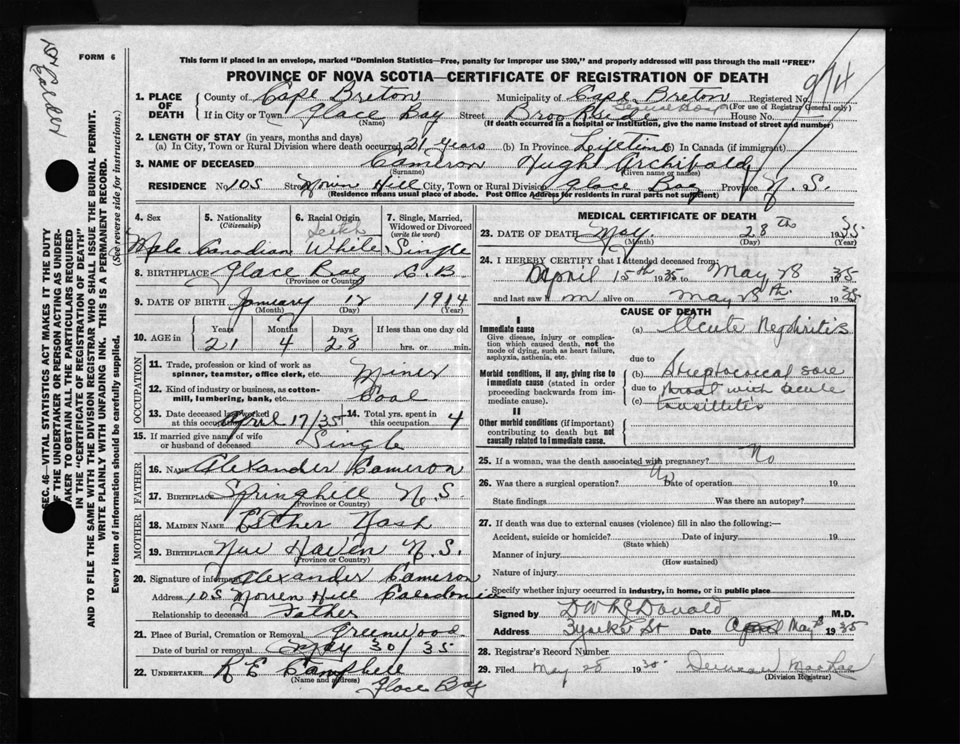 FORM 6
This form if placed in an envelope, marked "Dominion Statistics—Free, penalty for improper use $300," and properly addressed will pass through the mail "FREE"
PROVINCE OF NOVA SCOTIA—CERTIFICATE OF REGISTRATION OF DEATH
914
1. PLACE OF DEATH County of Cape Breton Municipality of Cape Breton Registered No.
(For use of Registrar General only)
If in City or Town Glace Bay Street Brookside House No.
(Name) (If death occurred in a hospital or institution, give the name instead of street and number)
2. LENGTH OF STAY (in years, months and days)
(a) In City, Town or Rural Division where death occurred 21 years (b) In Province Lifetime (c) In Canada (if immigrant)
3. NAME OF DECEASED Cameron Hugh Archibald
(Surname) (Given name or names)
RESIDENCE No. 105 Street Hill City, Town or Rural Division Glace Bay Province N. S.
(Residence means usual place of abode. Post Office Address for residents in rural parts not sufficient)
4. Sex 5. Nationality (Citizenship) 6. Racial Origin 7. Single, Married, Widowed or Divorced (write the word)
Male Canadian White Single
8. BIRTHPLACE Glace Bay C.B.
(Province or Country)
9. DATE OF BIRTH January 12 1914
(Month) (Day) (Year)
10. AGE in Years Months Days If less than one day old
21 4 28 hrs. or min.
OCCUPATION
11. Trade, profession or kind of work as spinner, teamster, office clerk, etc. Miner
12. Kind of industry or business, as cotton-mill, lumbering, bank, etc. Coal
13. Date deceased last worked at this occupation April 17/35 14. Total yrs. spent in this occupation 4
15. If married give name of wife or husband of deceased Single
FATHER
16. NAME Alexander Cameron
17. BIRTHPLACE Springhill N.S.
(Province or Country)
MOTHER
18. MAIDEN NAME Esther Nash
19. BIRTHPLACE New Haven N.S.
(Province or Country)
20. Signature of informant Alexander Cameron
Address 105 Hill Caledonia
Relationship to deceased Father
21. Place of Burial, Cremation or Removal Greenwood
Date of burial or removal May 30/35
22. UNDERTAKER R E Campbell
(Name and address) Glace Bay
MEDICAL CERTIFICATE OF DEATH
23. DATE OF DEATH May 28th 1935
(Month) (Day) (Year)
24. I HEREBY CERTIFY that I attended deceased from:
April 15th 1935 to May 28 1935
and last saw him alive on May 28th 1935
CAUSE OF DEATH
I
Immediate cause (a) Acute Nephritis
Give disease, injury or complication which caused death, not the mode of dying, such as heart failure, asphyxia, asthenia, etc.
due to
Morbid conditions, if any, giving rise to immediate cause (stated in order proceeding backwards from immediate cause).
(b) Streptococcal sore
due to throat with acute
(c) tonsillitis
II
Other morbid conditions (if important) contributing to death but not causally related to immediate cause.
25. If a woman, was the death associated with pregnancy? No
26. Was there a surgical operation? No Date of operation 19
State findings Was there an autopsy?
27. If death was due to external causes (violence) fill in also the following:—
Accident, suicide or homicide? Date of injury 19
(State which)
Manner of injury
(How sustained)
Nature of injury
Specify whether injury occurred in industry, in home, or in public place
Signed by D W McDonald M.D.
Address St Date May 1935
28. Registrar's Record Number
29. Filed May 28 1935
(Division Registrar)
SEC. 46—VITAL STATISTICS ACT MAKES IT THE DUTY
OF THE UNDERTAKER OR PERSON ACTING AS UNDERTAKER TO OBTAIN ALL THE PARTICULARS REQUIRED
IN THE "CERTIFICATE OF REGISTRATION OF DEATH"
AND TO FILE THE SAME WITH THE DIVISION REGISTRAR WHO SHALL ISSUE THE BURIAL PERMIT.
WRITE PLAINLY WITH UNFADING INK. THIS IS A PERMANENT RECORD.
Every item of information should be carefully supplied. (See reverse side for instructions.)